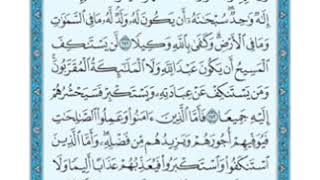 إِلَٰهٌ وَٰحِدٌ سُبْحَٰنَهُۥٓ أَن يَكُونَ لَهُۥ وَلَدٌ لَّهُۥ مَا فِي ٱلسَّمَٰوَٰتِ
وَمَا فِي ٱلْأَرْضِ وَكَفَىٰ بِٱللَّهِ وَكِيلًا ١٧١ لَّن يَسْتَنكِفَ
ٱلْمَسِيحُ أَن يَكُونَ عَبْدًا لِّلَّهِ وَلَا ٱلْمَلَٰٓئِكَةُ ٱلْمُقَرَّبُونَ
وَمَن يَسْتَنكِفْ عَنْ عِبَادَتِهِۦ وَيَسْتَكْبِرْ فَسَيَحْشُرُهُمْ
إِلَيْهِ جَمِيعًا ١٧٢ فَأَمَّا ٱلَّذِينَ ءَامَنُوا۟ وَعَمِلُوا۟ ٱلصَّٰلِحَٰتِ
فَيُوَفِّيهِمْ أُجُورَهُمْ وَيَزِيدُهُم مِّن فَضْلِهِۦ وَأَمَّا ٱلَّذِينَ
ٱسْتَنكَفُوا۟ وَٱسْتَكْبَرُوا۟ فَيُعَذِّبُهُمْ عَذَابًا أَلِيمًا وَلَا